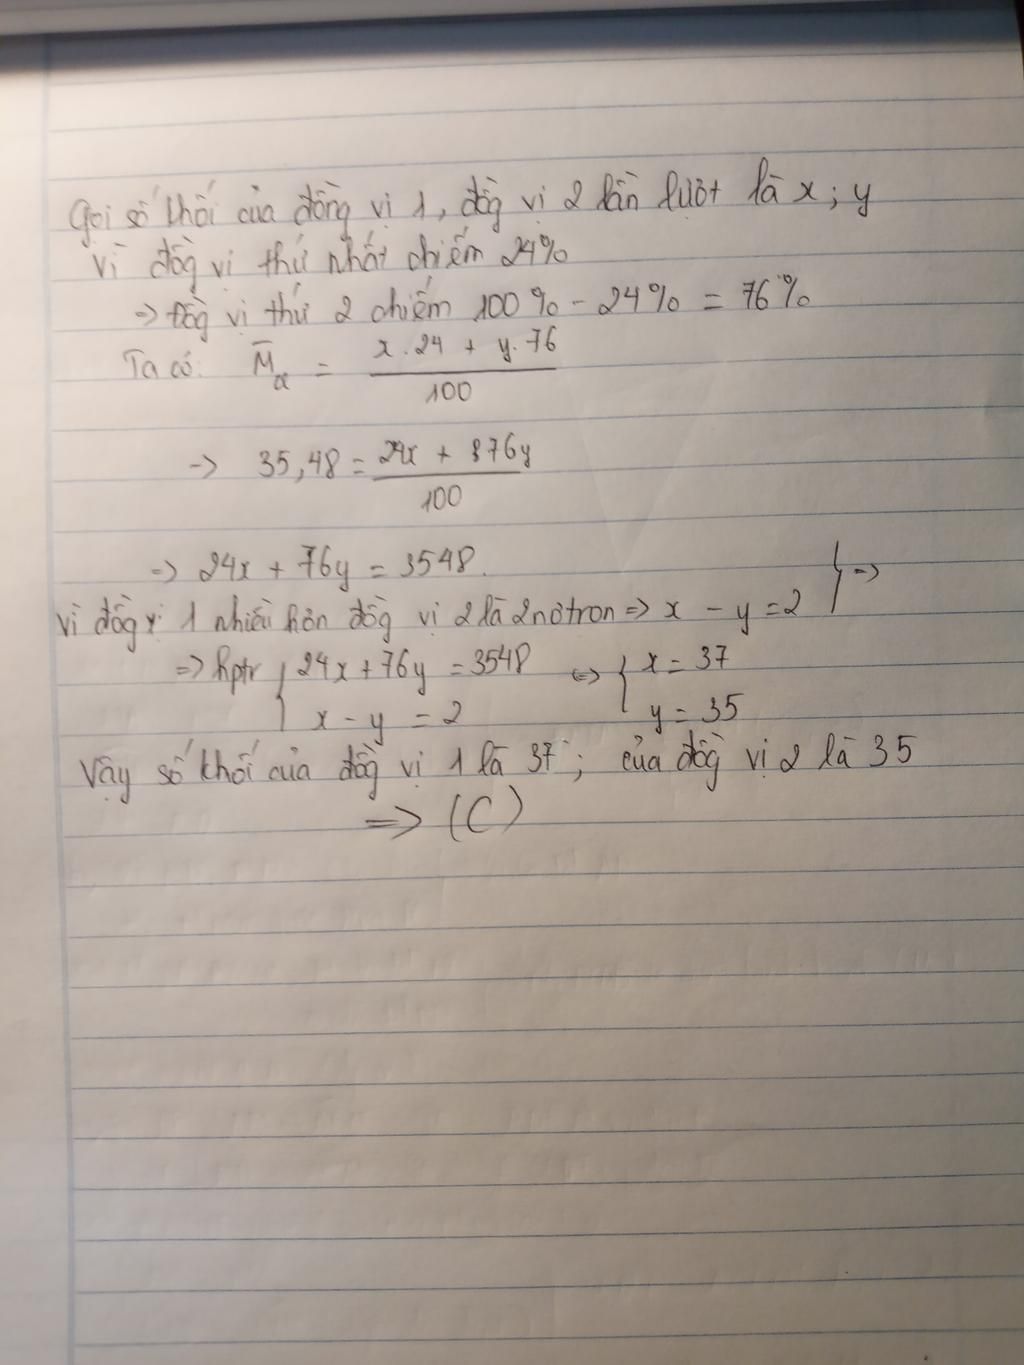 Gọi số khối của đồng vị 1, đồg vị 2 lần lượt là x; y
Vì đồg vị thứ nhất chiếm 24%
=> Đồg vị thứ 2 chiếm 100% - 24% = 76%
Ta có: M̄ = x.24 + y.76 / 100
-> 35,48 = 24x + 76y / 100
=> 24x + 76y = 3548.
Vì đồg vị 1 nhiều hơn đồg vị 2 là 2 nơtron => x - y = 2 } =>
=> hptr { 24x + 76y = 3548 <=> { x = 37
x - y = 2 y = 35
Vậy số khối của đồg vị 1 là 37; của đồg vị 2 là 35
=> (C)